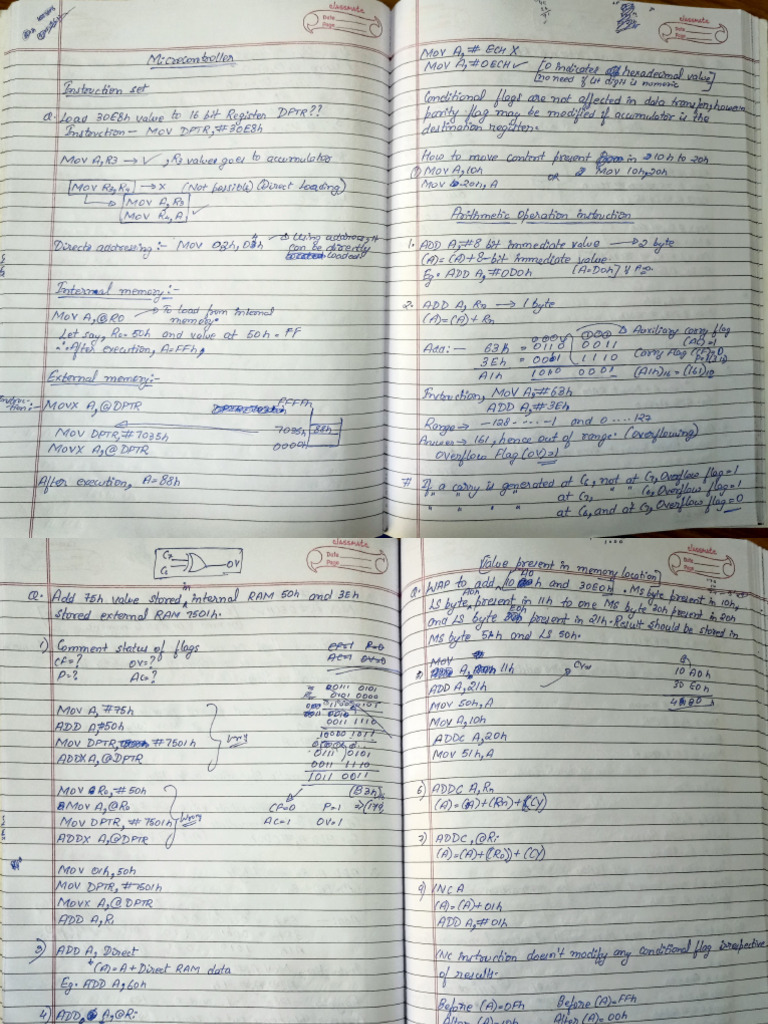 classmate
Date
Page
Microcontroller
Instruction set
Q. Load 30E8h value to 16 bit Register DPTR??
Instruction - MOV DPTR, #30E8h
MOV A, R3 → ✓, R3 values goes to accumulator
→ X (Not possible) (Direct Loading)
MOV A, R3
MOV R4, A ✓
Directs addressing:- MOV
Using address, it
can be directly
loaded
Internal memory:-
MOV A, @R0 → To load from internal
memory.
Let say, R0 = 50h and value at 50h = FF
∴ After execution, A = FFh,
External memory:-
Instruc-
tion:- MOVX A, @DPTR
FFFFh
MOV DPTR, #7035h
7035h 88h
MOVX A, @DPTR
0000h
After execution, A = 88h
classmate
Date
Page
MOV A, # ECH X
MOV A, #0ECH ✓ [0 indicates hexadecimal value]
no need if 1st digit is numeric
Conditional flags are not affected in data transfer, however
parity flag may be modified if accumulator is the
destination register.
How to move content present in 10h to 20h
① MOV A, 10h or 2 MOV 10h, 20h
MOV 20h, A
Arithmetic Operation instruction
1. ADD A, #8 bit immediate value → 2 byte
(A) = (A) + 8-bit immediate value
Eg. ADD A, #0D0h
2. ADD A, Rn → 1 byte
(A) = (A) + Rn
Auxiliary carry flag
(AC) = 1
Add:- 63h = 0110 0011
3Eh = 0011 1110
Carry Flag (CF) = 0
A1h 1010 0001 (A1h)16 = (161)10
Instruction, MOV A, #63h
ADD A, #3Eh
Range → -128 ...... -1 and 0 .... 127
Answer → 161, hence out of range (overflowing)
overflow Flag (OV) = 1
# If a carry is generated at C6, not at C7, Overflow flag = 1
" " " " at C7, " " C6, Overflow flag = 1
" " " " at C6, and at C7, Overflow flag = 0
classmate
Date
Page
C7
C6
OV
Q. Add 75h value stored in internal RAM 50h and 3Eh
stored external RAM 7501h.
1) Comment status of flags
CF = ? OV = ?
P = ? AC = ?
MOV A, #75h
ADD A, #50h
MOV DPTR, #7501h
Wrong
ADDX A, @DPTR
0111 0101
0011 1110
1011 0011
MOV R0, #50h
MOV A, @R0
MOV DPTR, #7501h
Wrong
ADDX A, @DPTR
(B3h)
CF = 0 P = 1 ⇒ (179)
AC = 1 OV = 1
MOV 01h, 50h
MOV DPTR, #7501h
MOVX A, @DPTR
ADD A, R1
3) ADD A, Direct
(A) = A + Direct RAM data
Eg. ADD A, 60h
4) ADD A, @Ri
classmate
Date
Page
[Value present in memory location]
Q. WAP to add 10 A0h and 30E0h. MS byte present in 10h,
LS byte present in 11h to one MS byte 30h present in 20h
and LS byte present in 21h. Result should be stored in
MS byte 51h and LS 50h.
MOV A, 11h
ADD A, 21h
MOV 50h, A
MOV A, 10h
ADDC A, 20h
MOV 51h, A
10 A0h
30 E0h
5) ADDC A, Rn
(A) = (A) + (Rn) + (CY)
7) ADDC, @Ri
(A) = (A) + ((R0)) + (CY)
9) INC A
(A) = (A) + 01h
ADD A, # 01h
INC Instruction doesn't modify any conditional flag irrespective
of result.
Before (A) = 0Fh Before (A) = FFh
After (A) = 10h After (A) = 00h